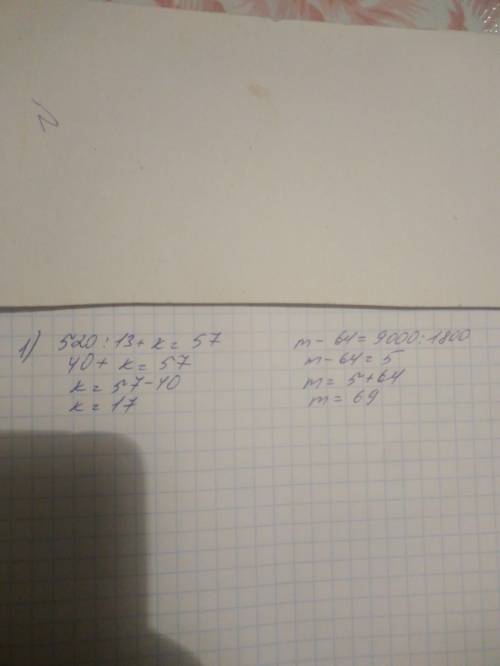 1) 520 : 13 + к = 57
40 + к = 57
к = 57 - 40
к = 17
m - 64 = 9000 : 1800
m - 64 = 5
m = 5 + 64
m = 69